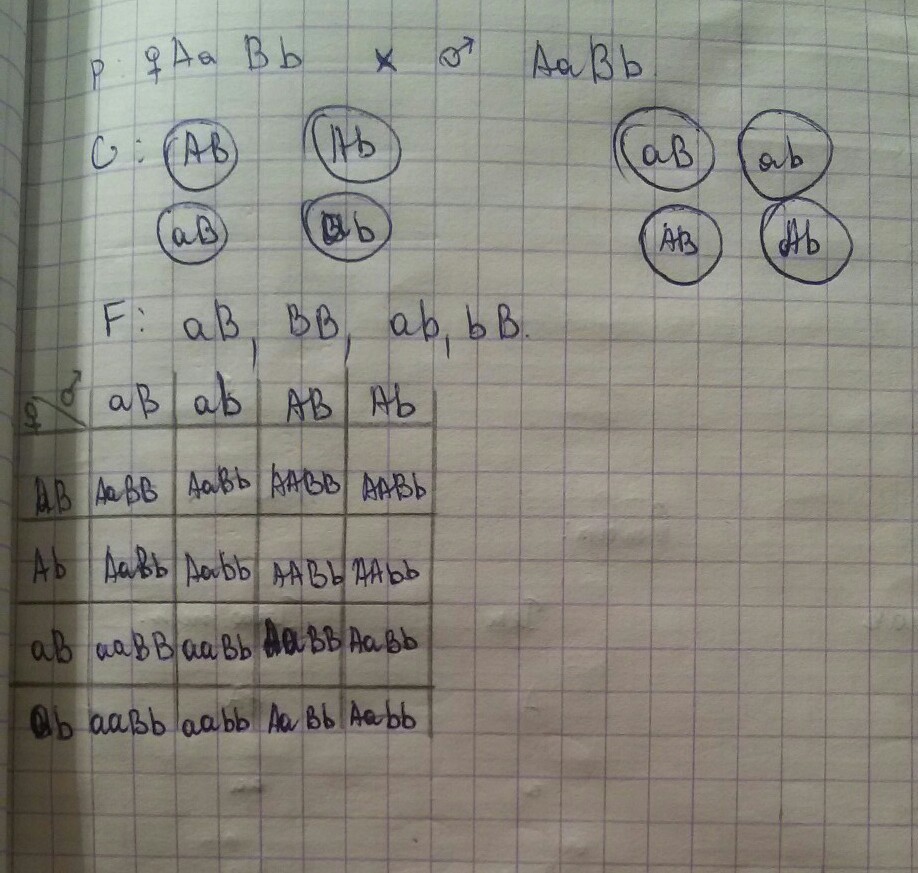 P: ♀ Aa Bb × ♂ AaBb
G: AB Ab aB ab
aB ab AB Ab
F: aB, BB, ab, bB.
♀/♂ aB ab AB Ab
AB AaBB AaBb AABB AABb
Ab AaBb Aabb AABb AAbb
aB aaBB aaBb AaBB AaBb
ab aaBb aabb AaBb Aabb